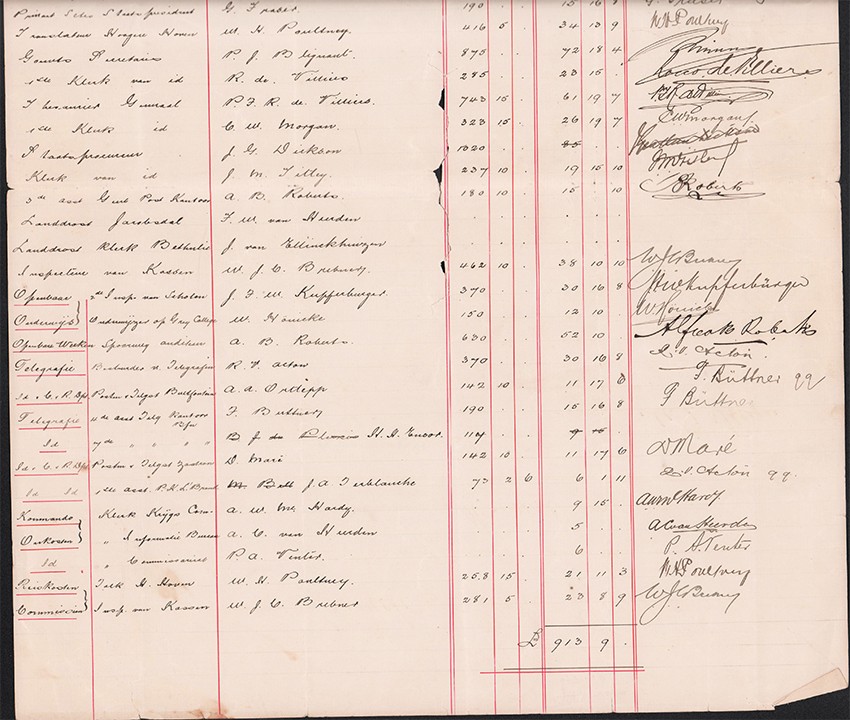 Privaat Secr. Staatspresident G. Fraser 190 . . 15 16 8
Translateur Hoogere Hoven W. H. Poultney 416 5 . 34 13 9 W.H. Poultney
Gouvts Secretaris P. J. Blignaut 875 . . 72 18 4
1ste Klerk van id R. de Villiers 285 . . 23 15 .
Thesaurier Generaal P. J. R. de Villiers 743 15 . 61 19 7
1ste Klerk id C. W. Morgan 323 15 . 26 19 7 C W Morgan
Staatsprocureur J. G. Dickson 1020 . . 85
Klerk van id J. M. Tilley 237 10 . 19 15 10
3de asst Gent Post Kantoor A. B. Roberts 180 10 . 15 . 10 Roberts
Landdrost Jacobsdal F. W. van Heerden
Landdrost Klerk Bethulie J. van Ellinckhuyzen
Inspecteur van Kassen W. J. C. Brebner 462 10 . 38 10 10
Openbaar 2de Insp. van Scholen J. F. W. Kupferburger 370 . . 30 16 8 Kupferbürger
Onderwijs Onderwijzer op Grey College W. Hönicke 150 . . 12 10 . W Hönicke
Openbare Werken Spoorweg A. B. Roberts 630 . . 52 10 . Alfred Roberts
Telegrafie Bestuurder v. Telegrafen R. V. Acton 370 . . 30 16 8 Acton
Id & P. Postm & Telgst Bultfontein A. d. Ortlepp 142 10 . 11 17 6 F. Büttner qq
Telegrafie 4de asst Telg Kantoor Bfn F. Buttner 190 . . 15 16 8 F Büttner
Id 7de " " " " B J du H. A. Enoor 114 . . 9 10 .
Id & P. Postm & Telgst D. Maré 142 10 . 11 17 6 D Maré
Id Id 1ste asst. Brand Bett J. A. Terblanche 73 2 6 6 1 11 Acton qq.
Kommando Klerk Krijgs Com. A. W. M. Hardy 9 15 . A W M Hardy
Onkosten " Informatie Bureau A. C. van Heerden 5 . . A C van Heerden
Id " Commissariaat P. A. Venter 6 . . P. A. Venter
Reiskosten Tolk H. Hoven W. H. Poultney 258 15 . 21 11 3 W.H. Poultney
Commissie Insp. van Kassen W. J. C. Brebner 281 5 . 23 8 9
£ 913 9 .